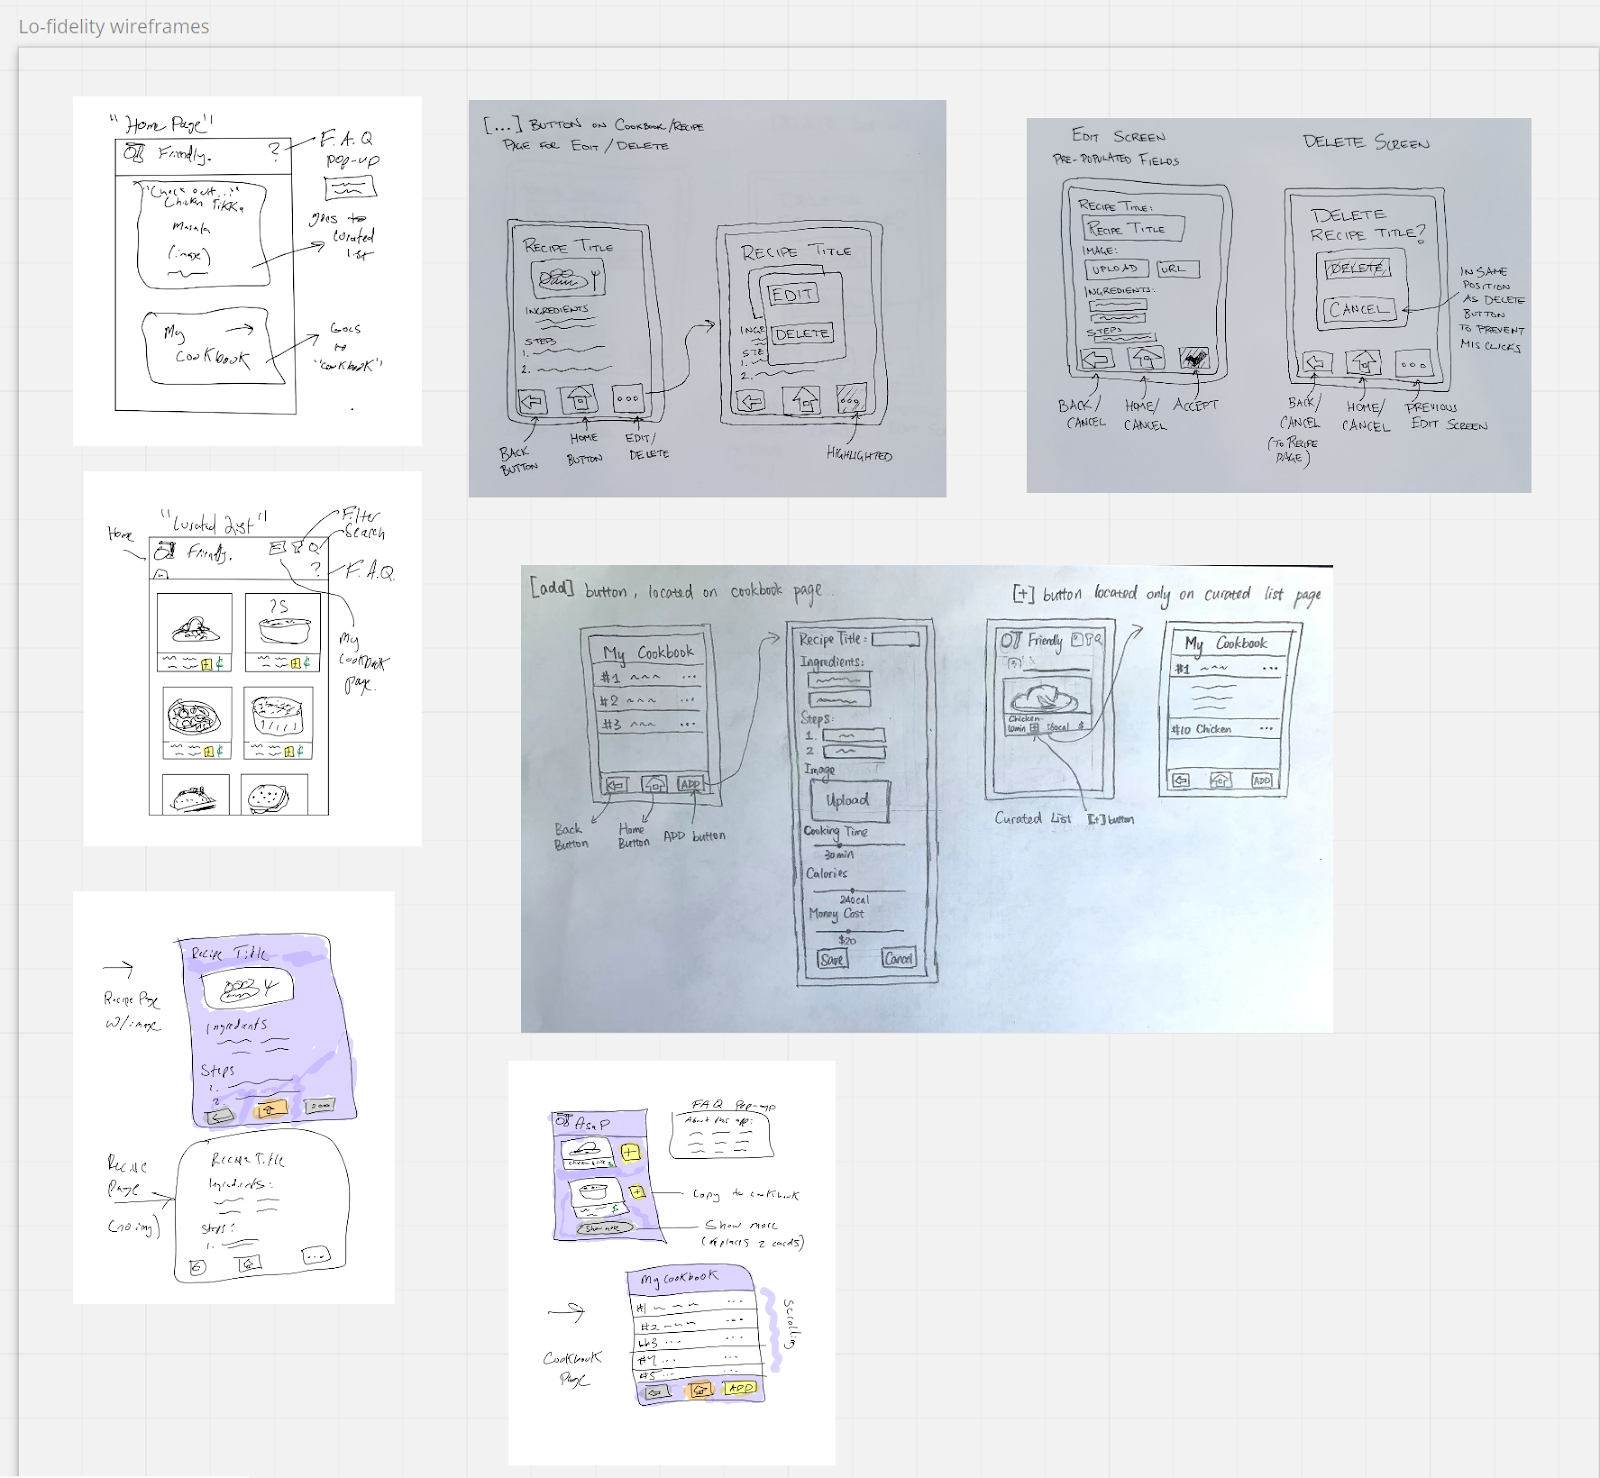 Lo-fidelity wireframes
"Home Page"
Friendly. ?
F.A.Q
pop-up
"Check out..."
Chicken Tikka
Masala
(image)
goes to
curated
list
My
Cookbook
Goes
to
"cookbook"
[...] BUTTON ON COOKBOOK/RECIPE
PAGE FOR EDIT/DELETE
RECIPE TITLE
INGREDIENTS
STEPS
1.
2.
BACK
BUTTON
HOME
BUTTON
EDIT/
DELETE
RECIPE TITLE
EDIT
DELETE
INGE
STE
1.
2.
HIGHLIGHTED
EDIT SCREEN
PRE-POPULATED FIELDS
RECIPE TITLE:
RECIPE TITLE
IMAGE:
UPLOAD URL
INGREDIENTS:
STEPS
BACK/
CANCEL
HOME/
CANCEL
ACCEPT
DELETE SCREEN
DELETE
RECIPE TITLE?
DELETE
CANCEL
IN SAME
POSITION
AS DELETE
BUTTON
TO PREVENT
MISCLICKS
BACK/
CANCEL
(TO RECIPE
PAGE)
HOME/
CANCEL
PREVIOUS
EDIT SCREEN
"Curated List"
Home
Friendly.
Filter
Search
? F.A.Q.
My
Cookbook
page.
[add] button, located on cookbook page.
My Cookbook
#1 ...
#2 ...
#3 ...
ADD
Back
Button
Home
Button
ADD button
Recipe Title:
Ingredients:
Steps:
1.
2
Image
Upload
Cooking Time
30min
Calories
240cal
Money Cost
$20
Save Cancel
[+] button located only on curated list page
Friendly
Chicken
10min
$
Curated List [+] button
My Cookbook
#1 ...
#10 Chicken ...
ADD
Recipe Page
w/image
Recipe Title
Ingredients
Steps
1.
2
Recipe
Page
(no img)
Recipe Title
Ingredients:
Steps:
1.
...
ASAP
FAQ Pop-up
About this app:
Copy to cookbook
Show more
Show more
(replaces 2 cards)
My Cookbook
#1 ...
#2 ...
#3 ...
#4 ...
#5 ...
ADD
Scrolling
Cookbook
Page